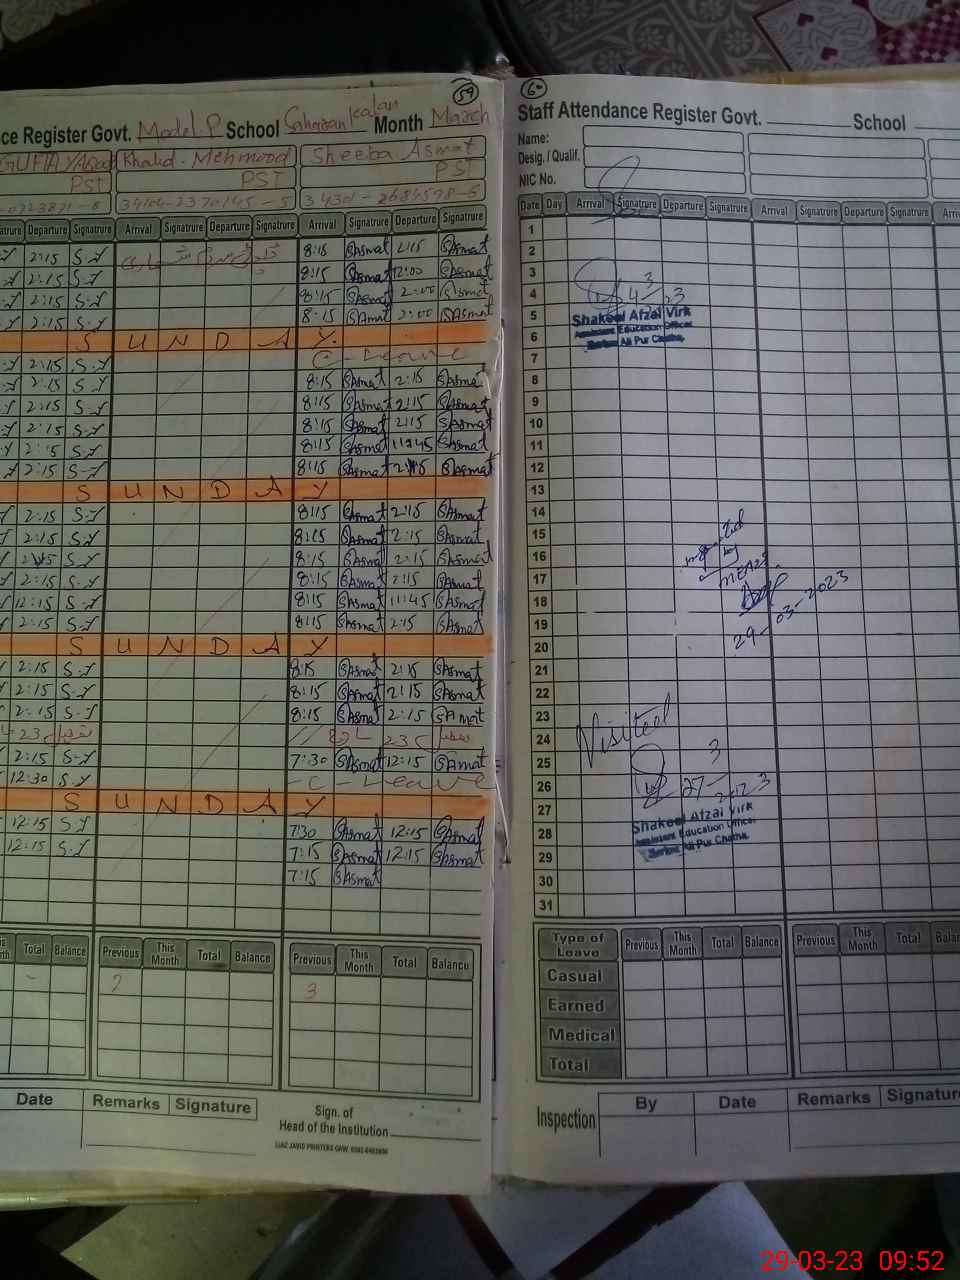 59
ce Register Govt. Model P School Saharan kalan Month March
Khalid Mehmood Sheeba Asmat
PST PST PST
34104-2370145-5 34301-2684578-6
Signature Arrival Signature Departure Signature Arrival Signature Departure Signature
2:15 S-Y 8:15 SAsmat 2:15 SAsmat
2:15 S-Y 8:15 SAsmat 12:00 SAsmat
2:15 S-Y 8:15 SAsmat 2:00 SAsmat
2:15 S-Y 8:15 SAsmat 2:00 SAsmat
S U N D A Y
2:15 S-Y C-Leave
2:15 S-Y 8:15 SAsmat 2:15 SAsmat
2:15 S-Y 8:15 SAsmat 2:15 SAsmat
2:15 S-Y 8:15 SAsmat 2:15 SAsmat
2:15 S-Y 8:15 SAsmat 11:45 SAsmat
2:15 S-Y 8:15 SAsmat 2:15 SAsmat
S U N D A Y
2:15 S-Y 8:15 SAsmat 2:15 SAsmat
2:15 S-Y 8:15 SAsmat 2:15 SAsmat
2:15 S-Y 8:15 SAsmat 2:15 SAsmat
2:15 S-Y 8:15 SAsmat 2:15 SAsmat
12:15 S-Y 8:15 SAsmat 11:45 SAsmat
2:15 S-Y 8:15 SAsmat 2:15 SAsmat
S U N D A Y
2:15 S-Y 8:15 SAsmat 2:15 SAsmat
2:15 S-Y 8:15 SAsmat 2:15 SAsmat
2:15 S-Y 8:15 SAsmat 2:15 SAsmat
23 23
2:15 S-Y 7:30 SAsmat 12:15 SAsmat
12:30 S-Y C-Leave
S U N D A Y
12:15 S-Y 7:30 SAsmat 12:15 SAsmat
12:15 S-Y 7:15 SAsmat 12:15 SAsmat
7:15 SAsmat
Total Balance Previous This Month Total Balance Previous This Month Total Balance
- 2 3
Date Remarks Signature
Sign. of
Head of the Institution
60
Staff Attendance Register Govt. School
Name:
Desig. / Qualif.
NIC No.
Date Day Arrival Signature Departure Signature Arrival Signature Departure Signature
1
2
3
4
5
6
7
8
9
10
11
12
13
14
15
16
17
18
19
20
21
22
23
24
25
26
27
28
29
30
31
Shakeel Afzal Virk
Assistant Education Officer
Markaz Ali Pur Chatha
by
MEA
29-03-2023
Visited
27-3-2023
Shakeel Afzal Virk
Assistant Education Officer
Markaz Ali Pur Chatha
Type of Leave Previous This Month Total Balance Previous This Month Total
Casual
Earned
Medical
Total
Inspection By Date Remarks Signature
29-03-23 09:52